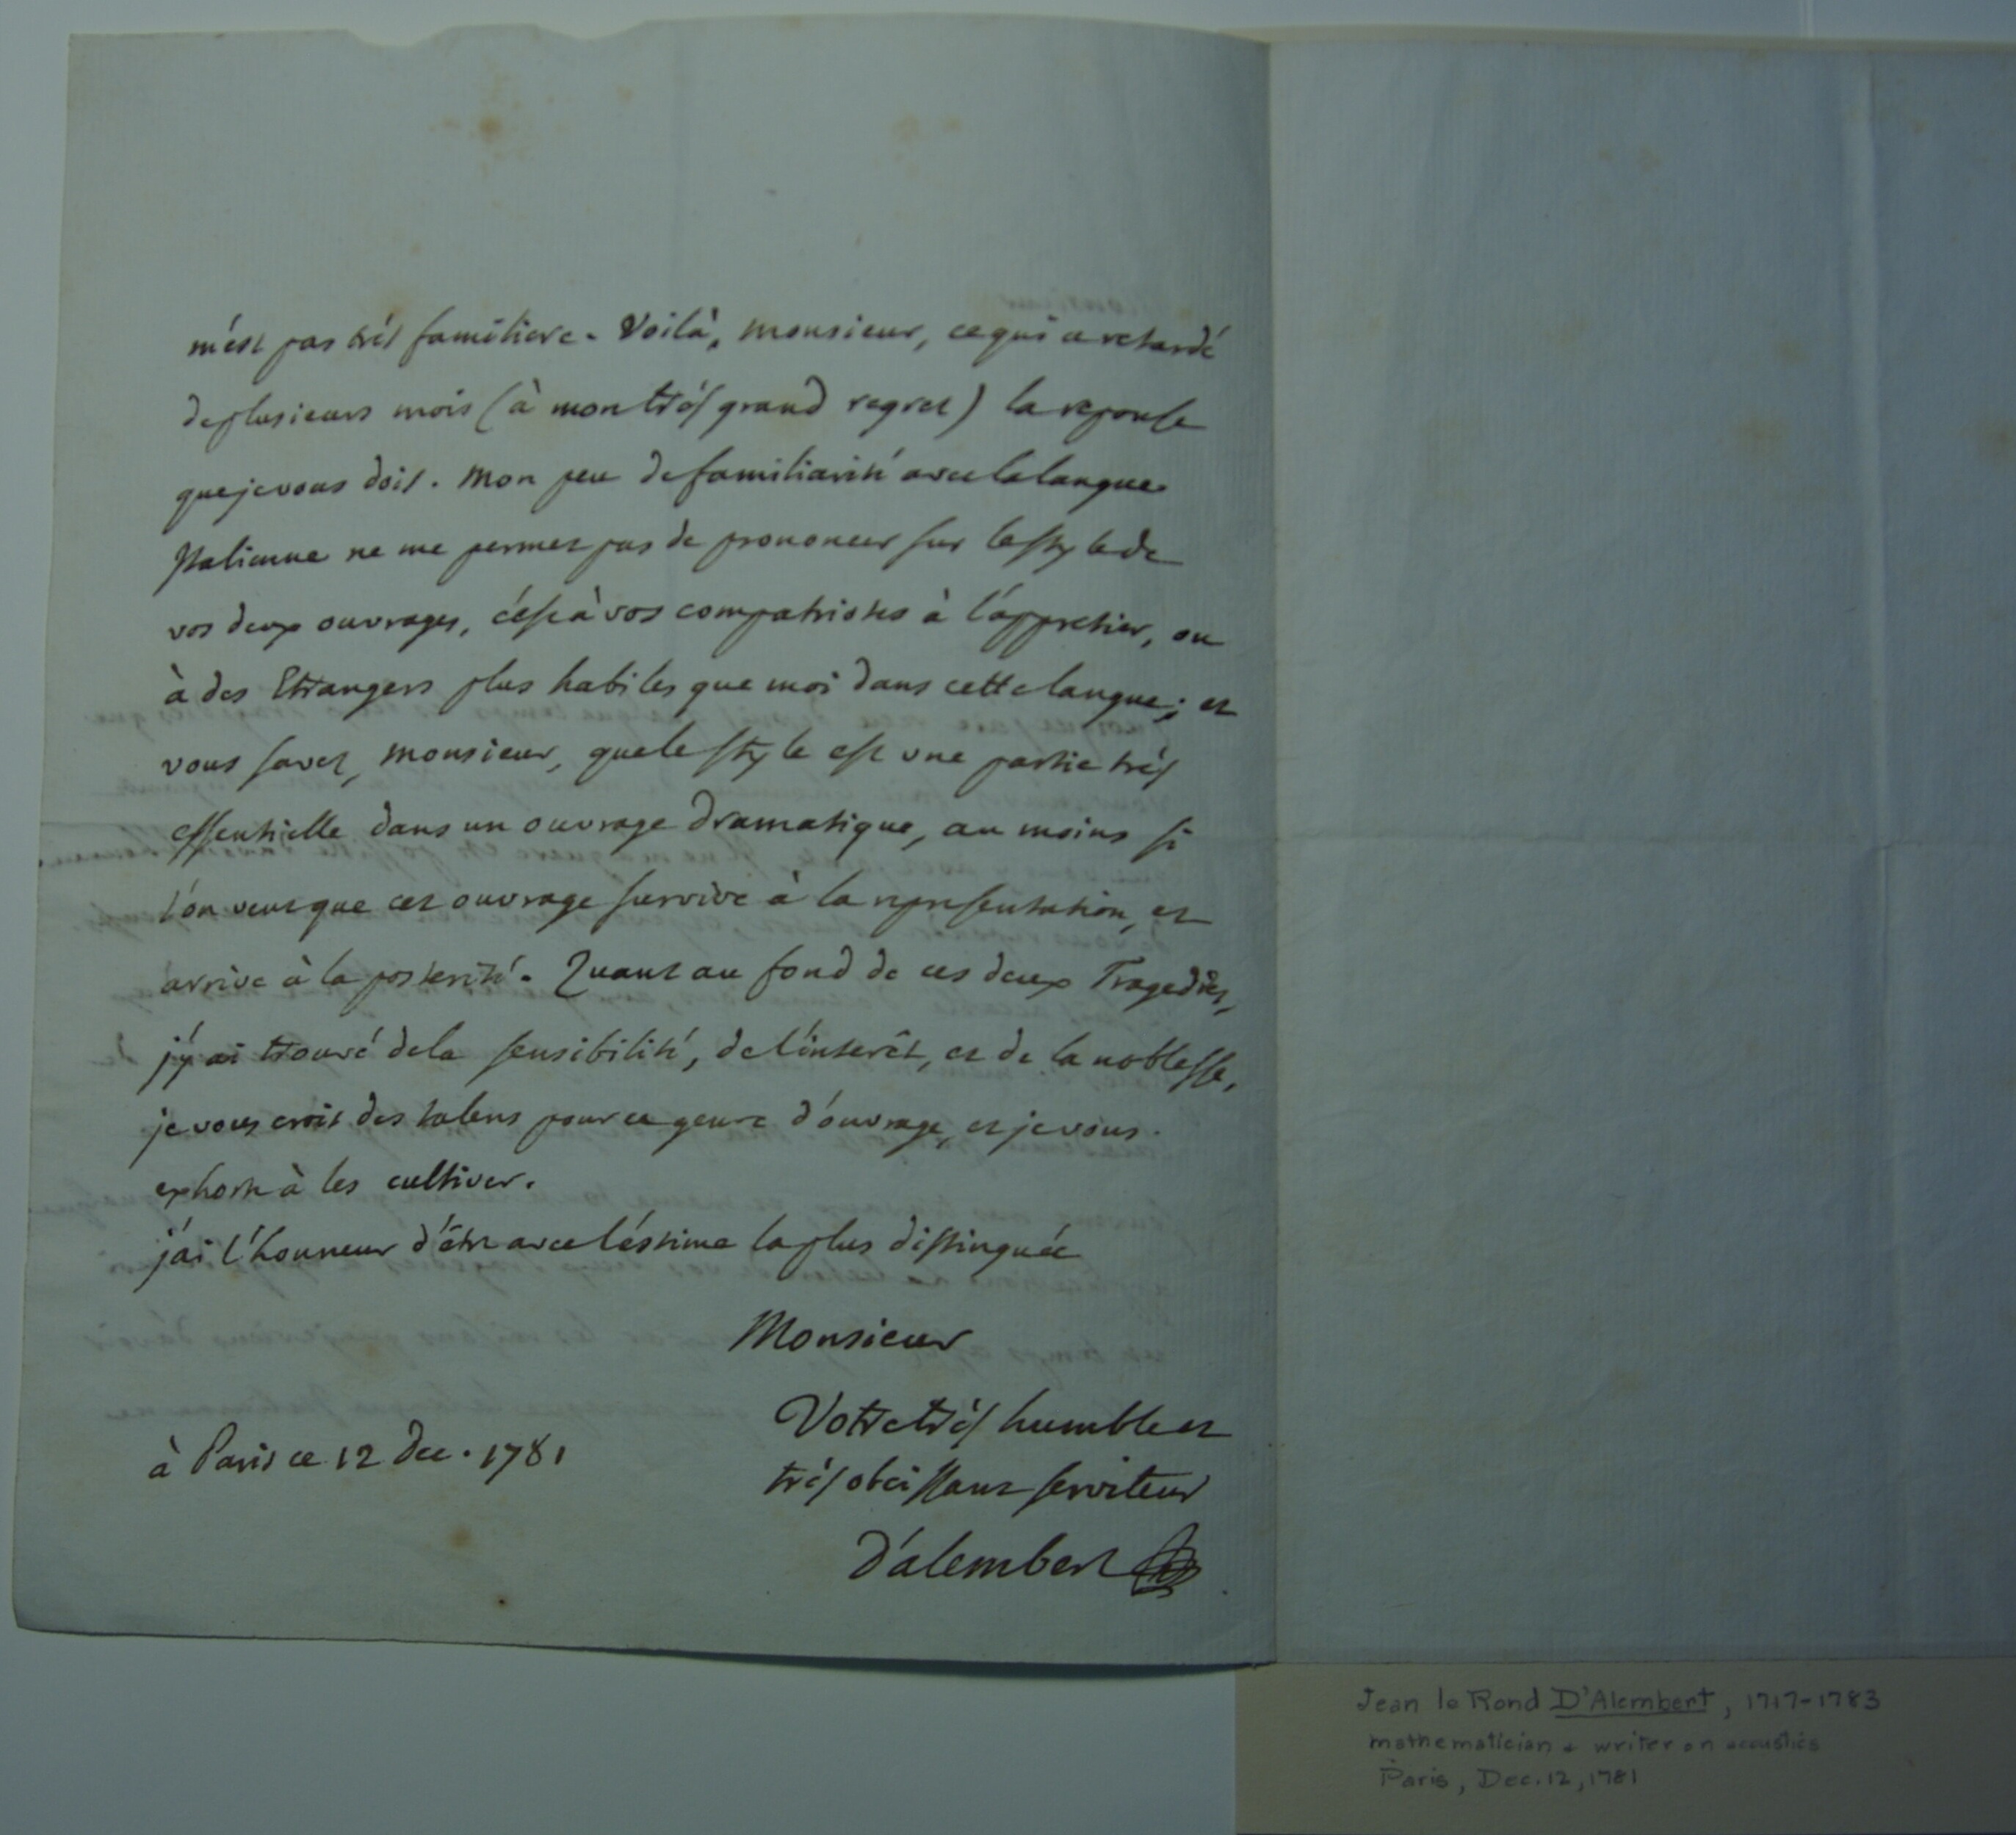 m'est pas très familiere. Voilà, monsieur, ce qui a retardé
de plusieurs mois (à mon très grand regret) la reponse
que je vous dois. Mon peu de familiarité avec la langue
Italienne ne me permet pas de prononcer sur le style de
vos deux ouvrages, c'est à vos compatriotes à l'apprétier, ou
à des Etrangers plus habiles que moi dans cette langue; et
vous savez, monsieur, que le style est une partie très
essentielle dans un ouvrage dramatique, au moins si
l'on veut que cet ouvrage survive à la representation, et
arrive à la posterité. Quant au fond de ces deux Tragedies,
j'y ai trouvé de la sensibilité, de l'interêt, et de la noblesse,
je vous crois des talens pour ce genre d'ouvrage, et je vous
exhorte à les cultiver.
j'ai l'honneur d'être avec l'estime la plus distinguée
Monsieur
Votre très humble et
très obeissant serviteur
à Paris ce 12 dec. 1781
D'alembert
Jean le Rond D'Alembert, 1717-1783
mathematician & writer on acoustics
Paris, Dec. 12, 1781